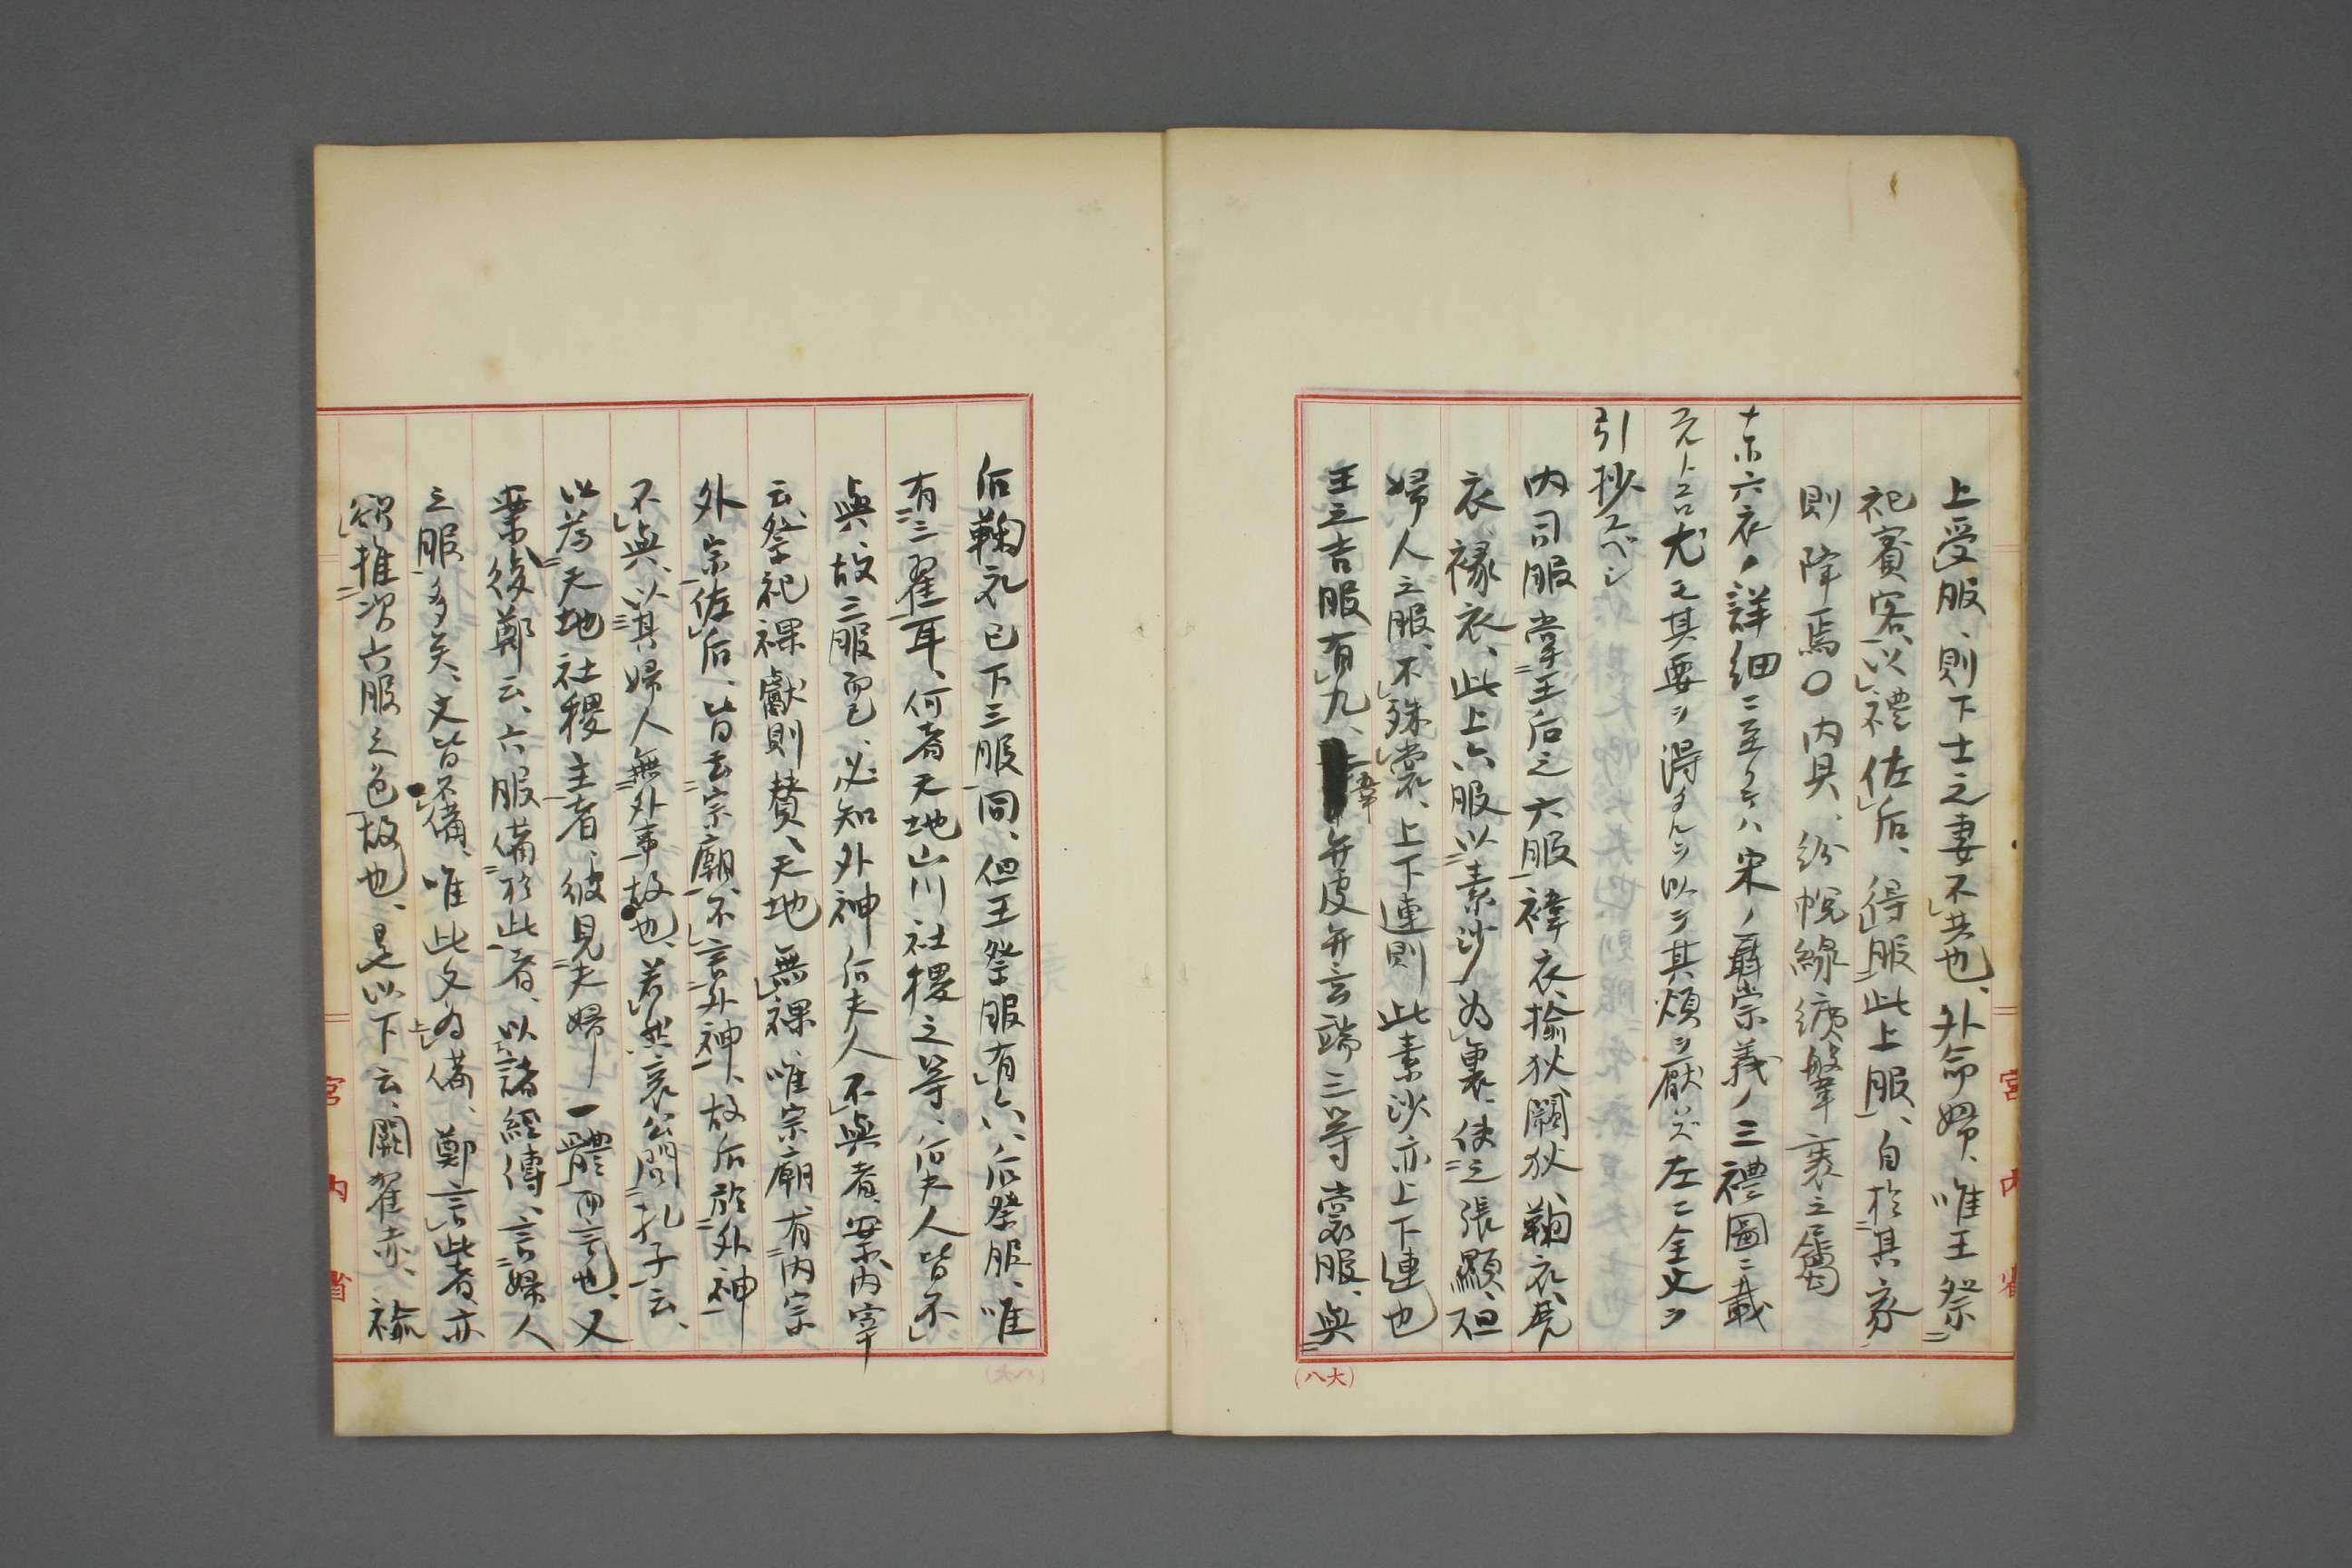 上受服、則下士之妻不共也、外命婦、唯王祭
祀賓客、以禮佐后、得服此上服、自於其家
則降焉〇内具、紛帨線纊鞶袠之屬
ナホ六衣ノ詳細ニ至リテハ宋ノ聶崇義ノ三禮圖ニ載
スルトコロ尤モ其要ヲ得タルヲ以テ其煩ヲ厭ハズ左ニ全文ヲ
引抄スベシ
内司服掌王后之六服、褘衣、揄狄、闕狄、鞠衣、展
衣、褖衣、此上六服以素沙為裏、使之張顯、但
婦人之服、不殊裳、上下連則此素沙亦上下連也
王之吉服有九、韋弁皮弁玄端三等裳服、與
后鞠衣已下三服同、但王祭服有六、后祭服、唯
有三翟耳、何者天地山川社稷之等、后夫人皆不
與、故三服而已、必知外神后夫人不與者、案内宰
云、祭祀祼獻則贊、天地無祼唯宗廟、有内宗
外宗佐后、皆云宗廟、不言外神、故后於外神
不與、以其婦人無外事故也、若然哀公問孔子云、
以為天地社稷主者、彼見夫婦一體而言也、又
案後鄭云、六服備於此者、以諸經傳、言婦人
之服多矣、文皆不備、唯此文為備、鄭言此者、亦
欲推次六服之色故也、是以下云、闕翟赤、褕
宮内省
宮内省
(八大)